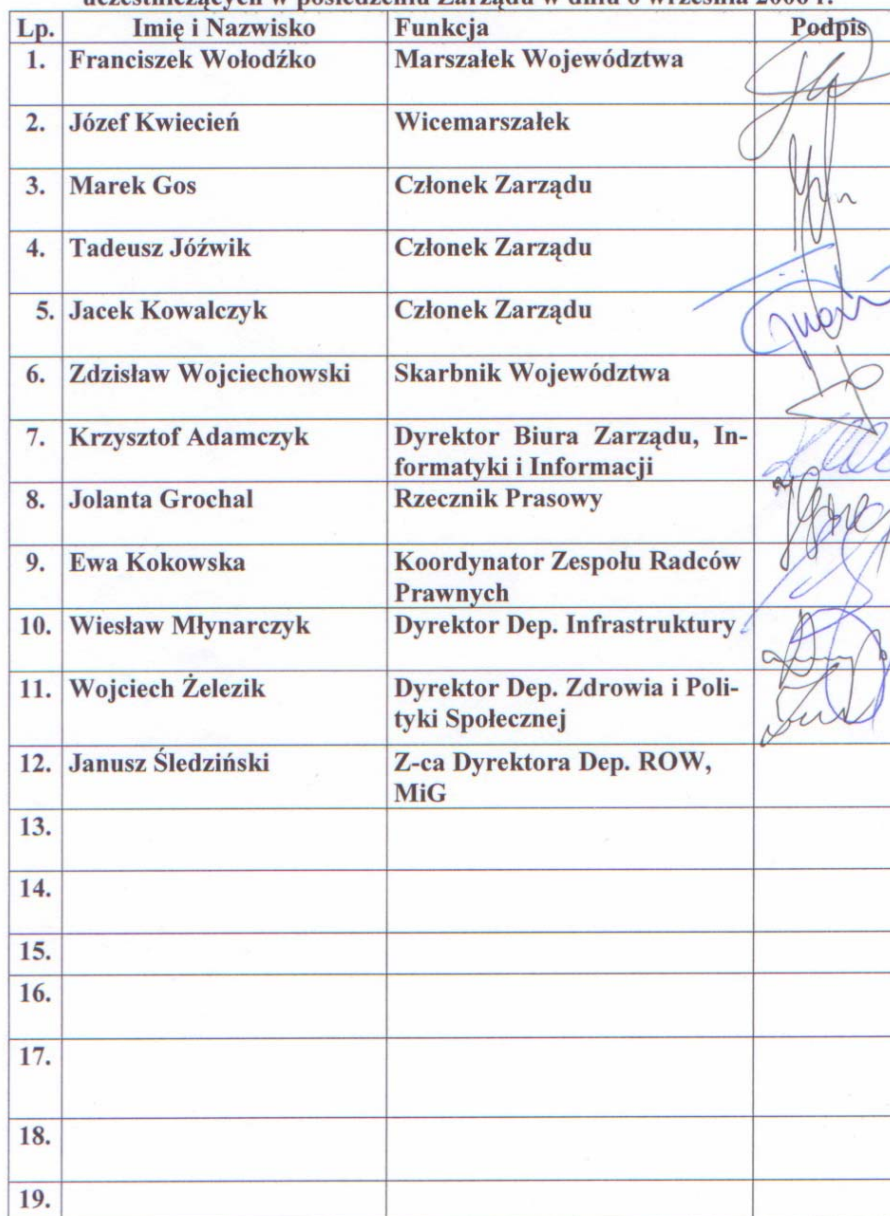 uczestniczących w posiedzeniu Zarządu w dniu 6 września 2006 r.
Lp. Imię i Nazwisko Funkcja Podpis
1. Franciszek Wołodźko Marszałek Województwa
2. Józef Kwiecień Wicemarszałek
3. Marek Gos Członek Zarządu
4. Tadeusz Jóźwik Członek Zarządu
5. Jacek Kowalczyk Członek Zarządu
6. Zdzisław Wojciechowski Skarbnik Województwa
7. Krzysztof Adamczyk Dyrektor Biura Zarządu, In-
formatyki i Informacji
8. Jolanta Grochal Rzecznik Prasowy
9. Ewa Kokowska Koordynator Zespołu Radców
Prawnych
10. Wiesław Młynarczyk Dyrektor Dep. Infrastruktury
11. Wojciech Żelezik Dyrektor Dep. Zdrowia i Poli-
tyki Społecznej
12. Janusz Śledziński Z-ca Dyrektora Dep. ROW,
MiG
13.
14.
15.
16.
17.
18.
19.